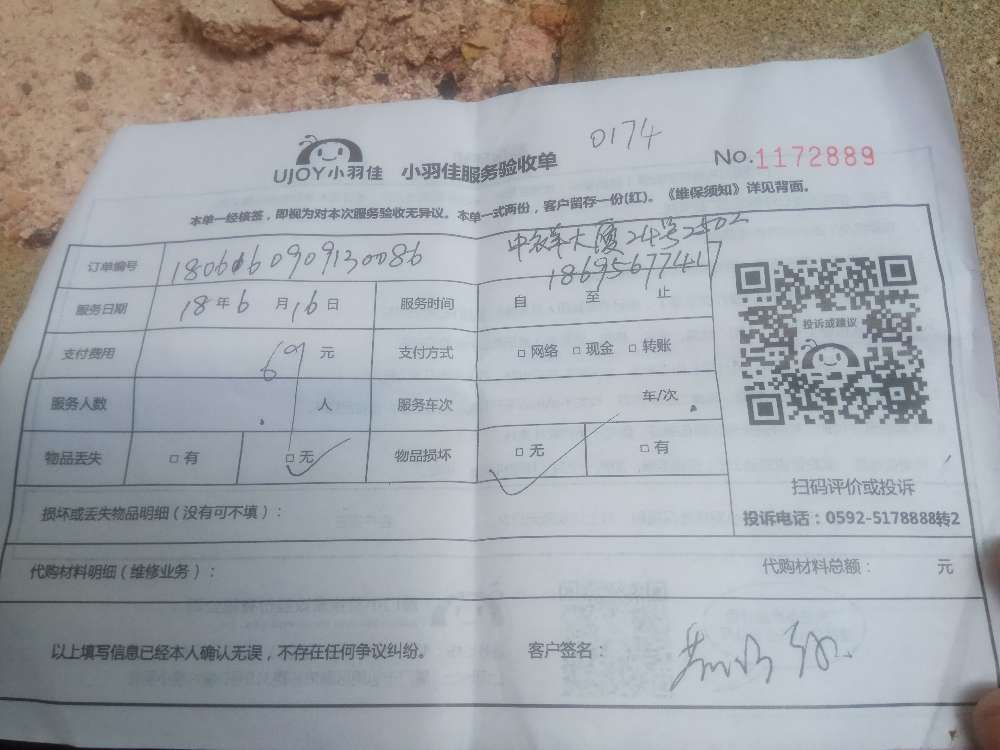 0174
UJOY小羽佳 小羽佳服务验收单
No.1172889
本单一经核签，即视为对本次服务验收无异议。本单一式两份，客户留存一份(红)。《维保须知》详见背面。
大厦24号2502
订单编号 1806160909130086
18695677417
服务日期 18年6月16日 服务时间 自 至 止
投诉或建议
支付费用 69元 支付方式 □ 网络 □ 现金 □ 转账
服务人数 人 服务车次 年/次
物品丢失 □ 有 □ 无 物品损坏 □ 无 □ 有
扫码评价或投诉
损坏或丢失物品明细（没有可不填）：
投诉电话：0592-5178888转2
代购材料明细（维修业务）：
代购材料总额： 元
以上填写信息已经本人确认无误，不存在任何争议纠纷。 客户签名：